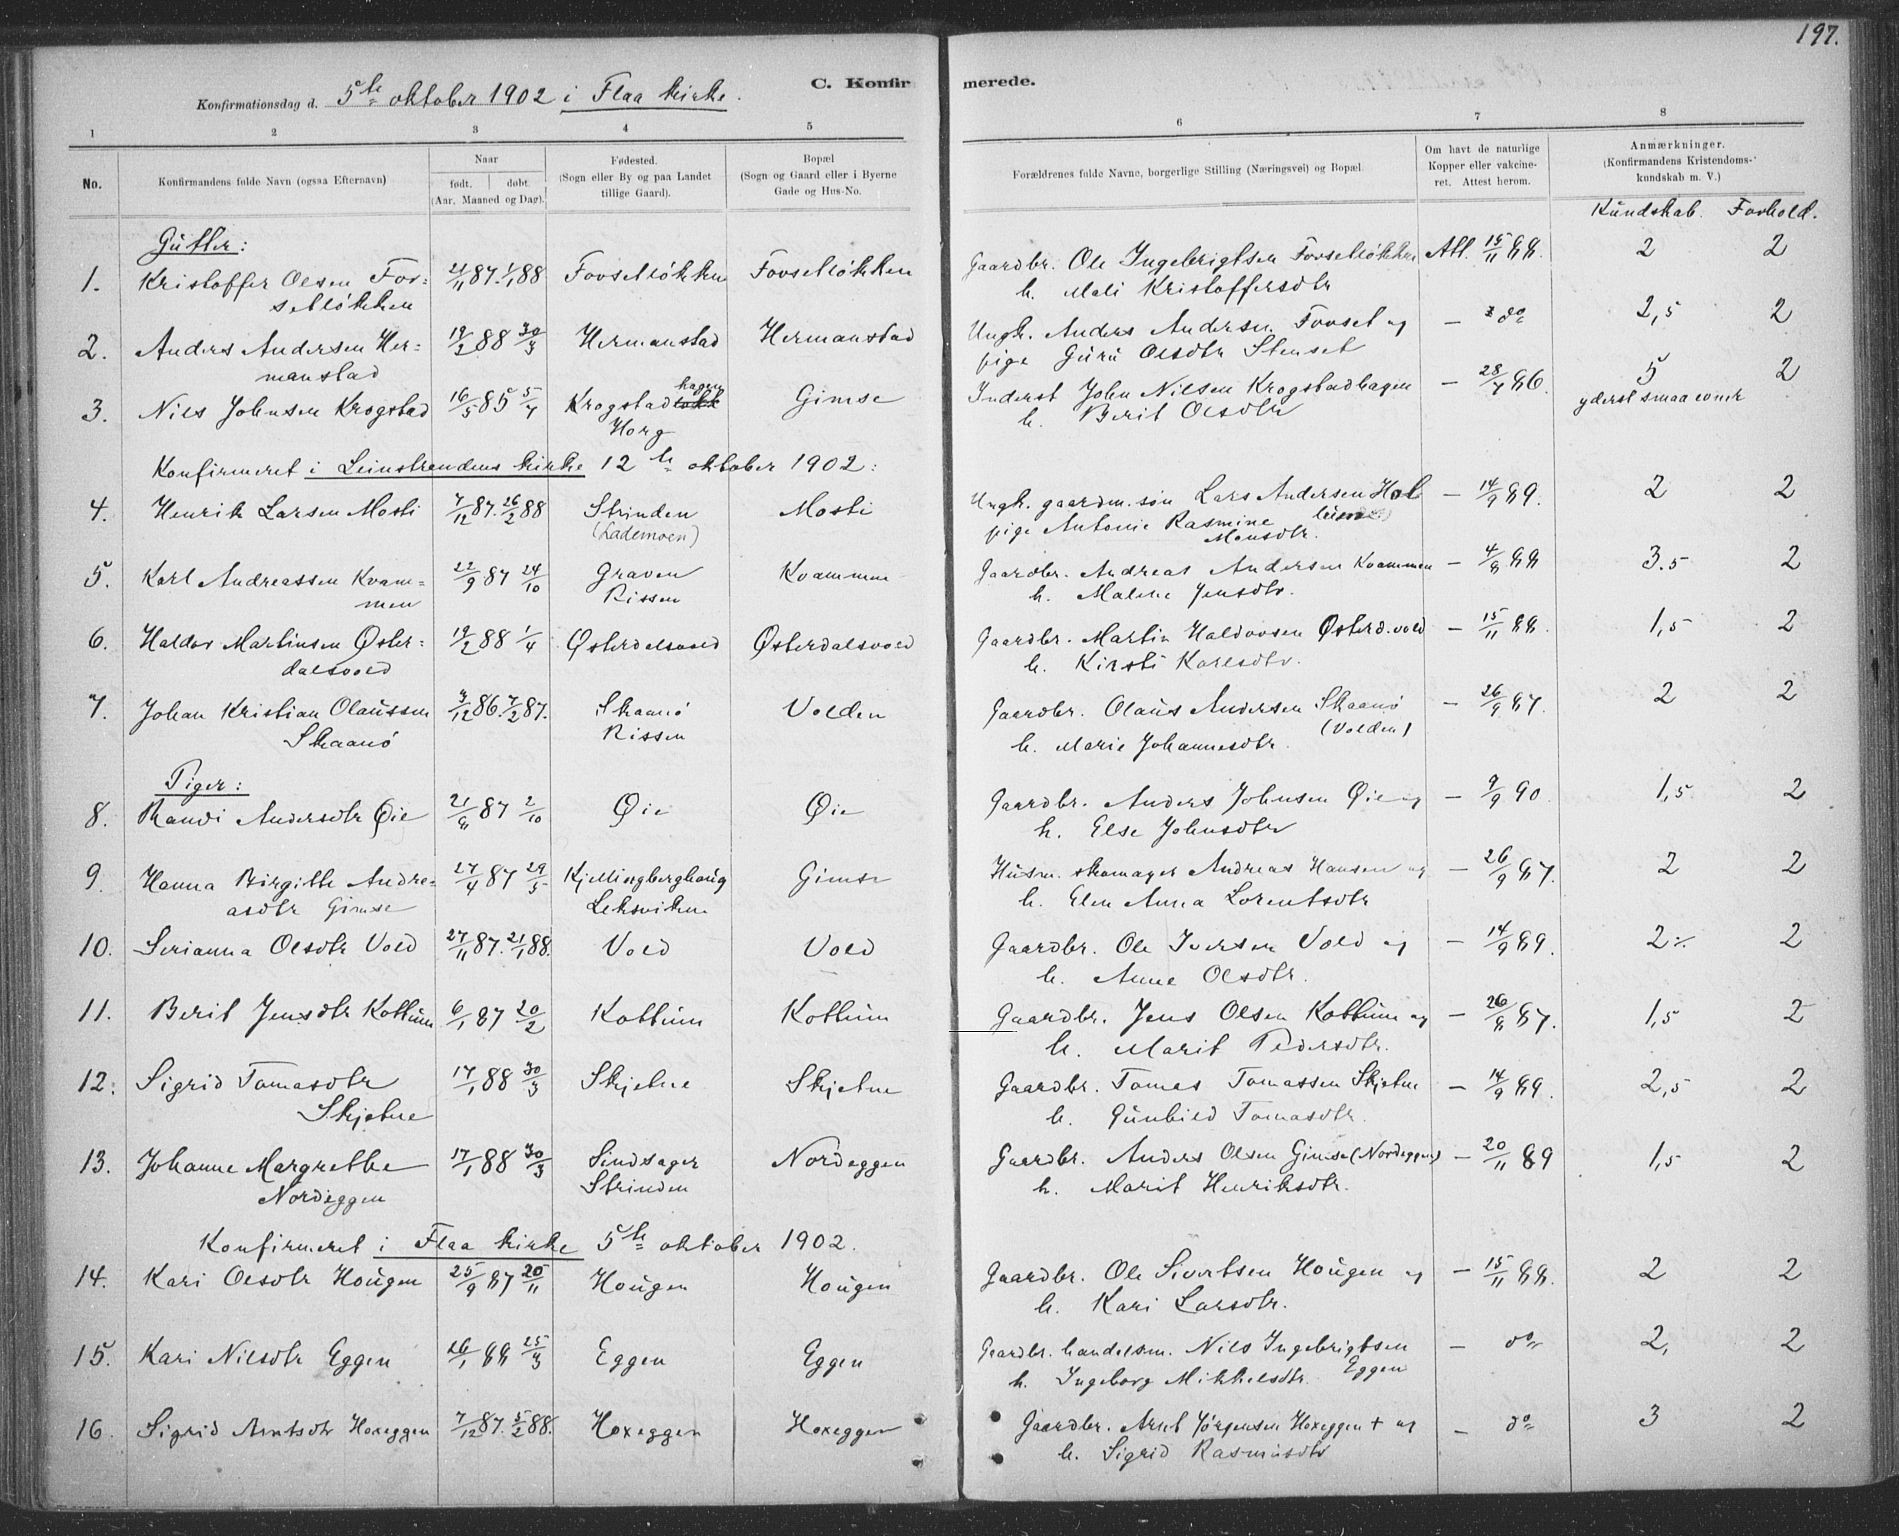 197.
Konfirmationsdag d. 5te oktober 1902 i Flaa kirke.
C. Konfirmerede.
1 2 3 4 5 6 7 8
No.
Konfirmandens fulde Navn (ogsaa Efternavn)
Naar
født. døbt.
(Aar, Maaned og Dag).
Fødested.
(Sogn eller By og paa Landet
tillige Gaard).
Bopæl
(Sogn og Gaard eller i Byerne
Gade og Hus-No.
Forældrenes fulde Navne, borgerlige Stilling (Næringsvei) og Bopæl.
Om havt de naturlige
Kopper eller vakcine-
ret. Attest herom.
Anmærkninger.
(Konfirmandens Kristendoms-
kundskab m. V.)
Kundskab. Forhold.
Gutter:
1. Kristoffer Olsen Fos- 21/11 87. 1/1 88 Fossetløkken Fossetløkken Gaardbr. Ole Ingebrigtsen Fossetløkken Att. 15/11 88. 2 2
setløkken h. Mali Kristoffersdtr
2. Anders Andersen Her- 19/2 88 30/3 Hermanstad Hermanstad Ungk. Anders Andersen Fosset og — do 2,5 2
manstad pige Guru Olsdtr Stenset
3. Nils Johnsen Krogstad 16/5 85 5/7 Krogstadhagen Gimse Inderst John Nilsen Krogstadhagen — 28/7 86. 5 2
Horg h. Berit Olsdtr yderst smaa evner
Konfirmeret i Leinstrandens kirke 12te oktober 1902:
4. Henrik Larsen Mosti 7/12 87. 26/2 88 Strinden Mosti Ungk. gaardm. søn Lars Andersen Hol — 14/9 89. 2 2
(Lademoen) pige Antonie Rasmine
Monsdtr.
5. Karl Andreassen Kvam- 22/9 87 24/10 Graven Kvammen Gaardbr. Andreas Andersen Kvammen — 4/8 88 3.5 2
men Rissen h. Malene Jensdtr.
6. Haldor Martinsen Øster- 19/2 88 1/4 Østerdalsvold Østerdalsvold Gaardbr. Martin Haldorsen Østerd.vold — 15/11 88. 1,5 2
dalsvold h. Kirsti Karlsdtr.
7. Johan Kristian Olaussen 3/12 86. 7/2 87. Skaanø Volden Gaardbr. Olaus Andersen Skaanø — 26/9 87. 2 2
Skaanø Rissen (Volden)
h. Marie Johannesdtr.
Piger:
8. Randi Andersdtr Øie 21/8 87 2/10 Øie Øie Gaardbr. Anders Johnsen Øie og — 9/9 90. 1,5 2
h. Else Johnsdtr
9. Hanna Birgitte Andre- 27/4 87 29/5 Kjellingberghaug Gimse Husm. skomager Andreas Hansen og — 26/9 87. 2 2
asdtr Gimse Leksviken h. Elen Anna Lorentsdtr
10. Serianna Olsdtr Vold 27/11 87. 21/1 88. Vold Vold Gaardbr. Ole Iversen Vold og — 14/9 89. 2 2
h. Anne Olsdtr.
11. Berit Jensdtr Kottum 6/1 87 20/2 Kottum Kottum Gaardbr. Jens Olsen Kottum og — 26/8 87. 1,5 2
h. Marit Pedersdtr.
12. Sigrid Tomasdtr 17/1 88 30/3 Skjetne Skjetne Gaardbr. Tomas Tomassen Skjetne — 14/9 89. 2,5 2
Skjetne h. Gunhild Tomasdtr.
13. Johanne Margrethe 17/1 88 30/3 Sindsager Nordeggen Gaardbr. Anders Olsen Gimse (Nordeggen) — 20/11 89 1,5 2
Nordeggen Strinden h. Marit Henriksdtr.
Konfirmeret i Flaa kirke 5te oktober 1902.
14. Kari Olsdtr Hougen 25/9 87 20/11 Hougen Hougen Gaardbr. Ole Sivertsen Hougen og — 15/11 88. 2 2
h. Kari Larsdtr.
15. Kari Nilsdtr Eggen 26/1 88 25/3 Eggen Eggen Gaardbr. handelsm. Nils Ingebrigtsen — do 2, 2
h. Ingeborg Mikkelsdtr. Eggen
16. Sigrid Arntsdtr Hoxeggen 7/12 87. 5/2 88. Hoxeggen Hoxeggen Gaardbr. Arnt Jørgensen Hoxeggen + og — do 3 2
h. Sigrid Rasmusdtr